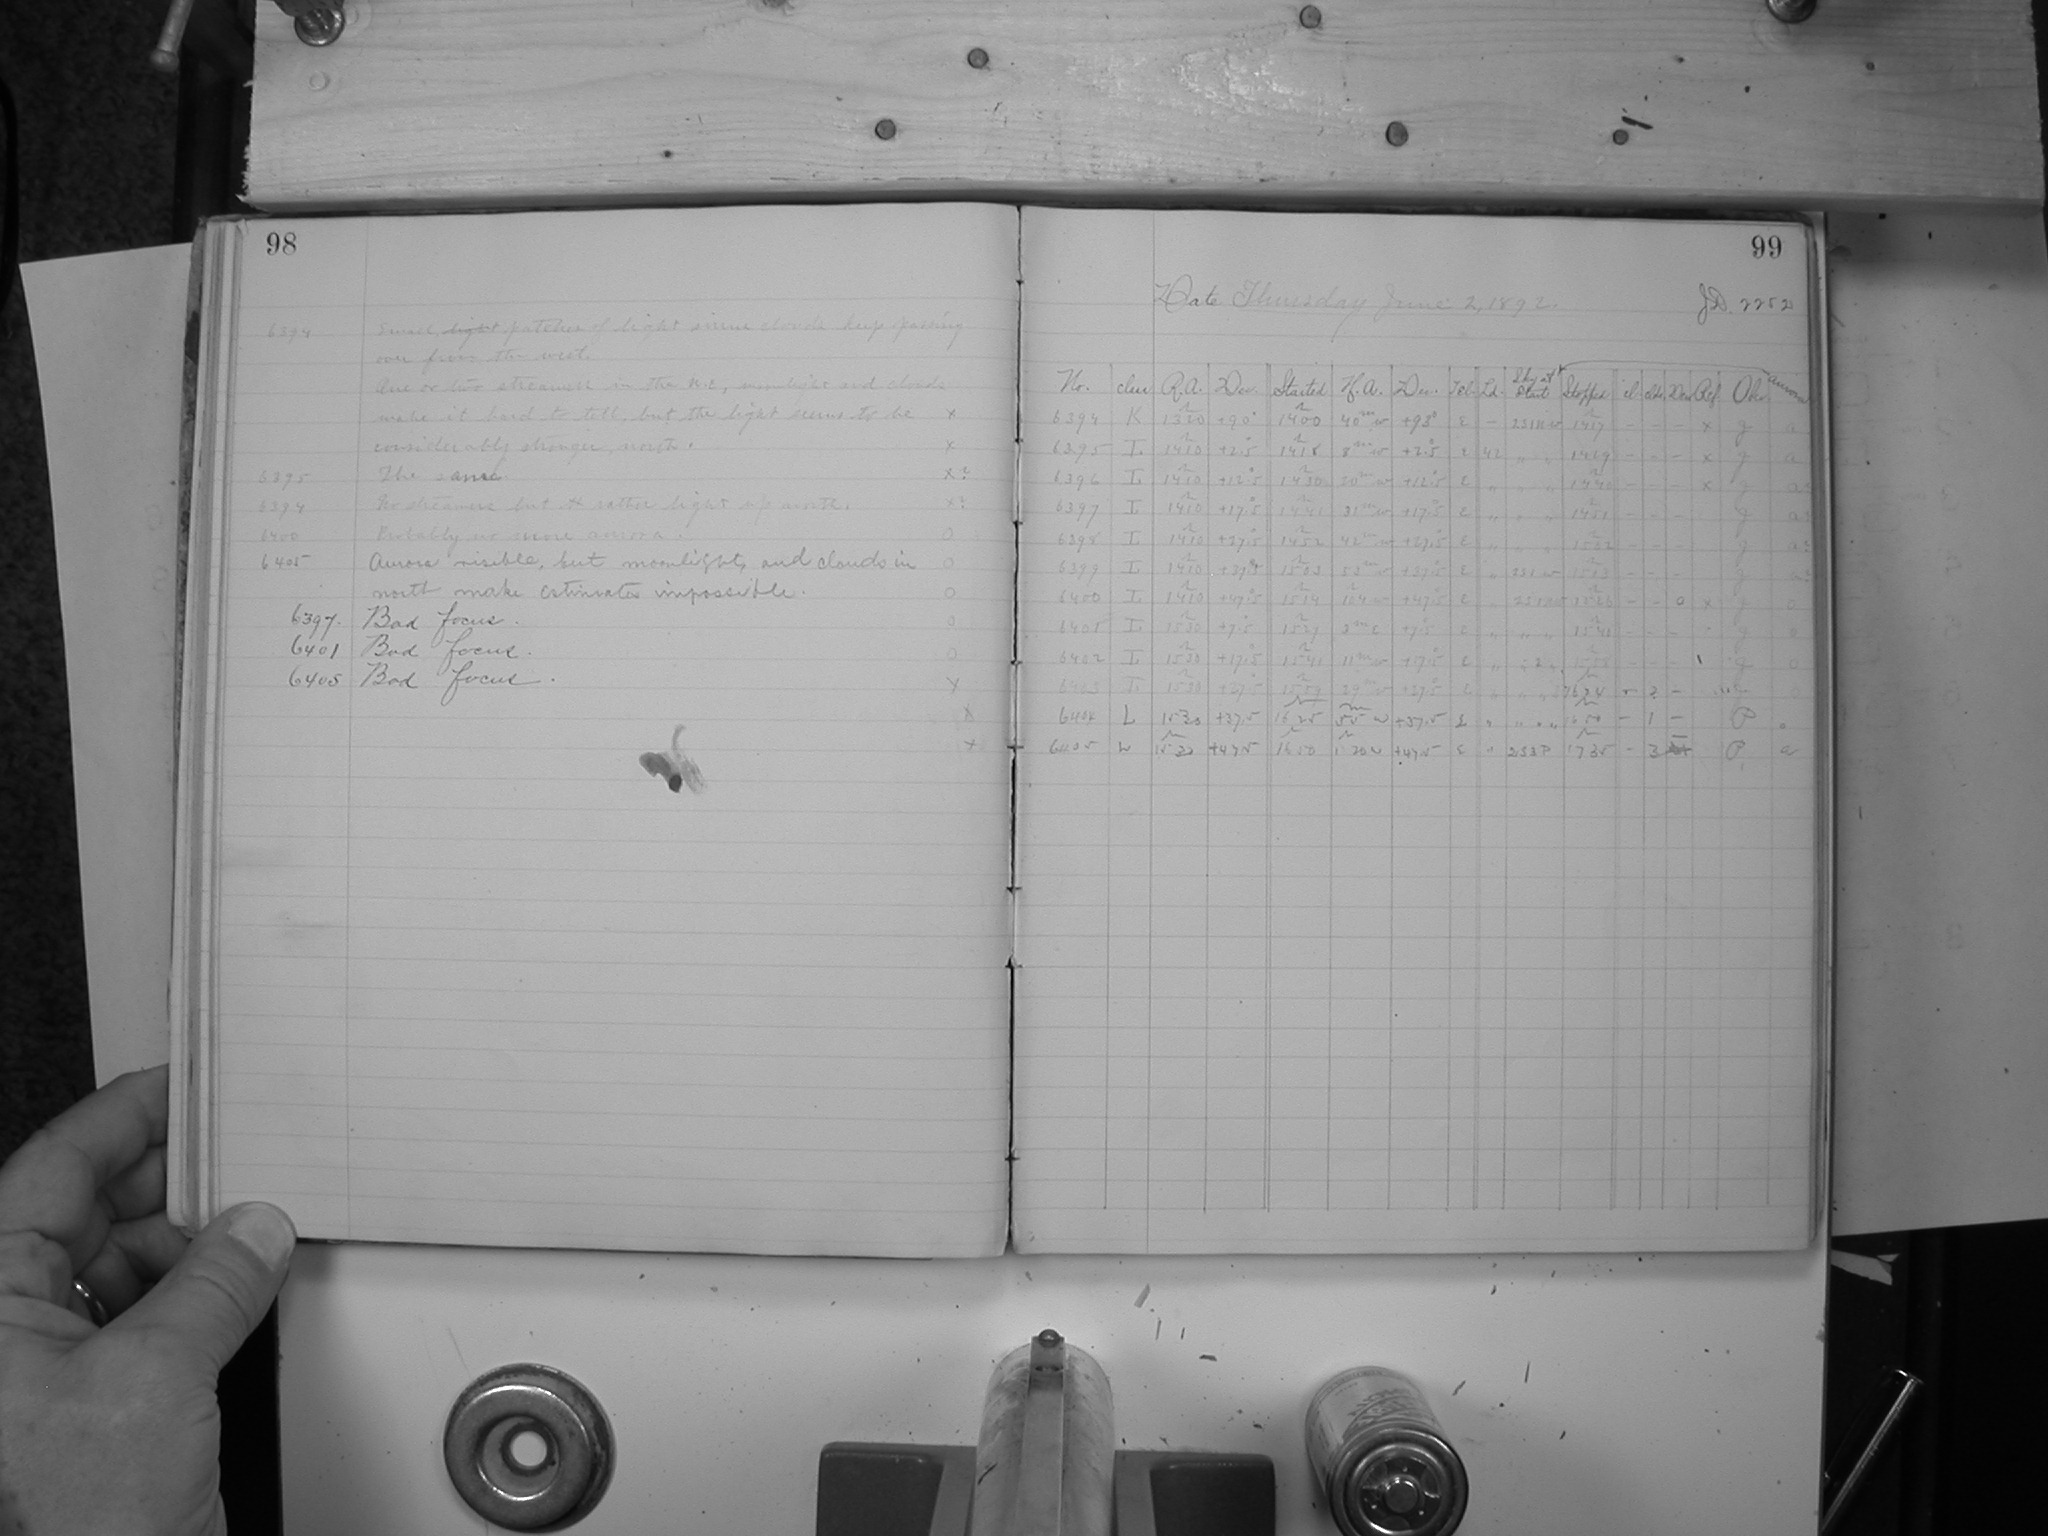 98
6394 Small, light patches of light snow clouds keep passing
over from the west.
One or two streamers in the N.E, moonlight and clouds
make it hard to tell, but the light seems to be x
considerably stronger, north. x
6395 The same x?
6394 No streamers but rather light up north. x?
6400 Probably no more aurora. 0
6405 Aurora visible, but moonlight, and clouds in 0
north make estimates impossible. 0
6397. Bad focus. 0
6401 Bad focus. 0
6405 Bad focus. x
x
x
99
Date Thursday June 2, 1892. JD. 2252
No. class R.A. Dec. Started H.A. Dec. Tel. Ld. Sky at Start Stopped cl. clds. Dew Ref. Obs. aurora
6394 K 1320 +90° 1400 40m w +93° E - 231NW 1417 - - - x g a
6395 I 1410 +2.5 1418 8m w +2.5 E 42 " " 1429 - - - x g a
6396 I 1410 +12.5 1430 20m w +12.5 E " " " 1440 - - - x g a?
6397 I 1410 +17.5 1441 31m w +17.5 E " " " 1451 - - - g a?
6398 I 1410 +27.5 1452 42m w +27.5 E " " " 1502 - - - g a?
6399 I 1410 +37.5 1503 53m w +37.5 E " 231 w 1513 - - - g a?
6400 I 1410 +47.5 1514 104 w +47.5 E " - - 0 x g 0
6401 I 1530 +7.5 1527 3m E +7.5 E " " - - - g 0
6402 I 1530 +17.5 1541 11m w +17.5 E " 1558 - - - g 0
6403 I 1530 +27.5 1559 29m w +27.5 E " " 1624 - 2 - 0
6404 L 1530 +37.5 1625 55 w +37.5 E " " " 1650 - 1 - P 0
6405 L 1530 +47.5 1650 1 20 w +47.5 E " 233 P 1735 - 3 - P a